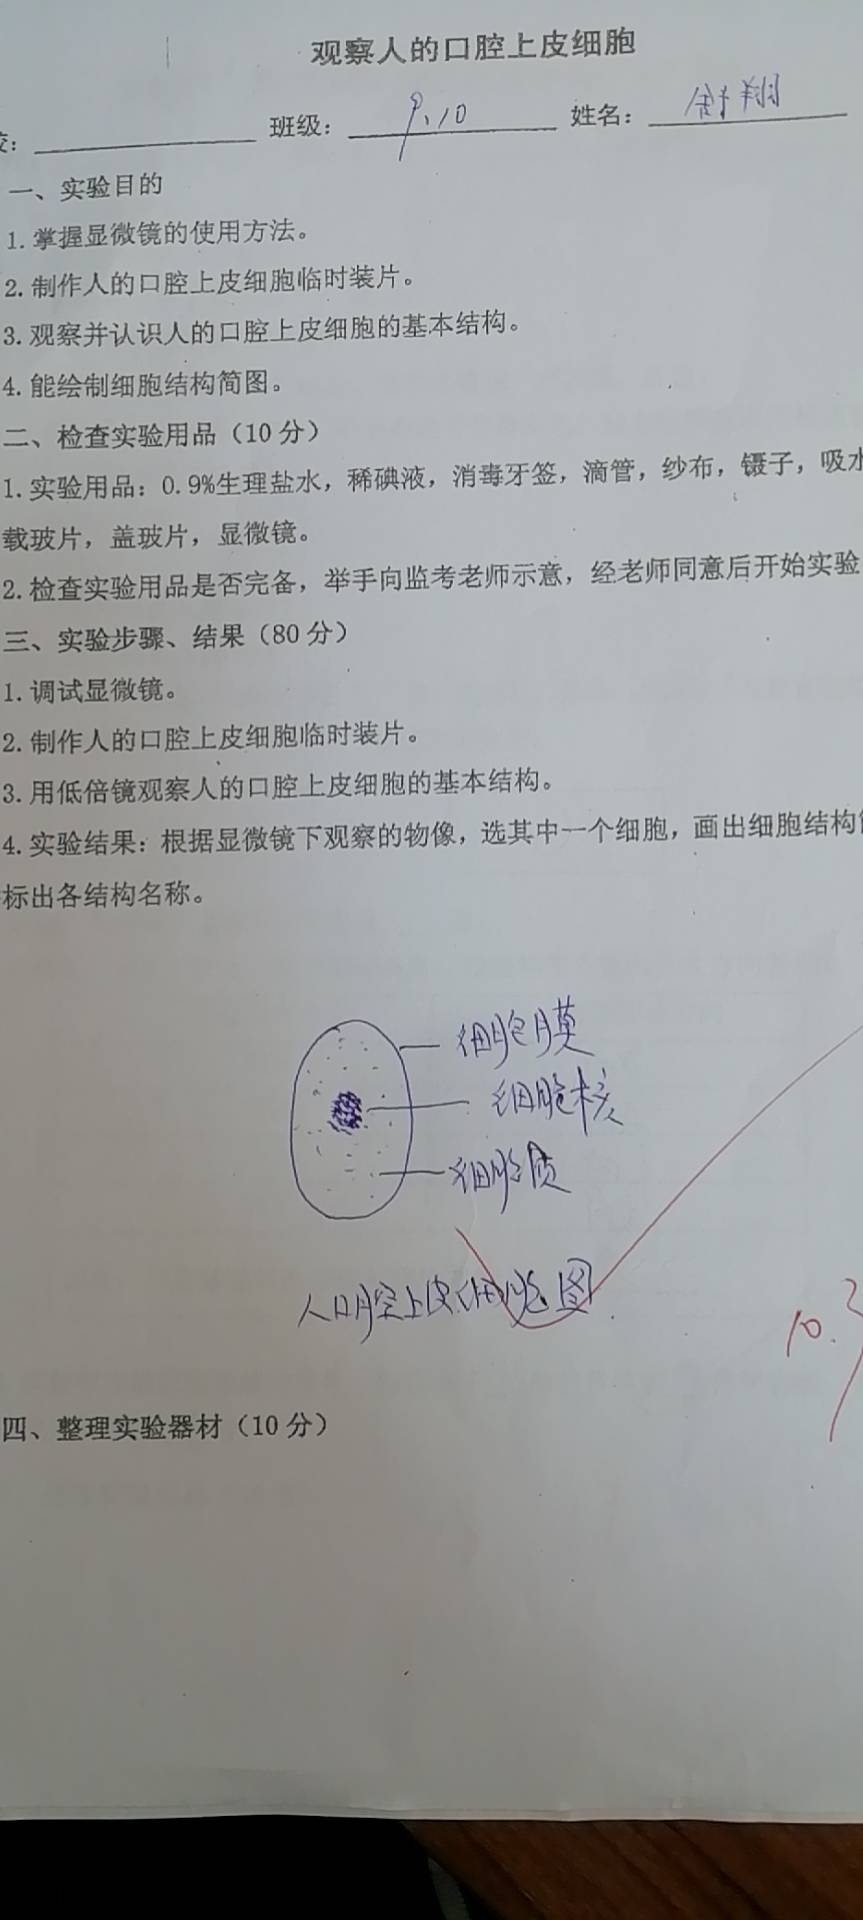 观察人的口腔上皮细胞
校：班级：9.10 姓名：舒翔
一、实验目的
1.掌握显微镜的使用方法。
2.制作人的口腔上皮细胞临时装片。
3.观察并认识人的口腔上皮细胞的基本结构。
4.能绘制细胞结构简图。
二、检查实验用品（10分）
1.实验用品：0.9%生理盐水，稀碘液，消毒牙签，滴管，纱布，镊子，吸水
载玻片，盖玻片，显微镜。
2.检查实验用品是否完备，举手向监考老师示意，经老师同意后开始实验
三、实验步骤、结果（80分）
1.调试显微镜。
2.制作人的口腔上皮细胞临时装片。
3.用低倍镜观察人的口腔上皮细胞的基本结构。
4.实验结果：根据显微镜下观察的物像，选其中一个细胞，画出细胞结构
标出各结构名称。
细胞膜
细胞核
细胞质
人口腔上皮细胞图
10.3
四、整理实验器材（10分）